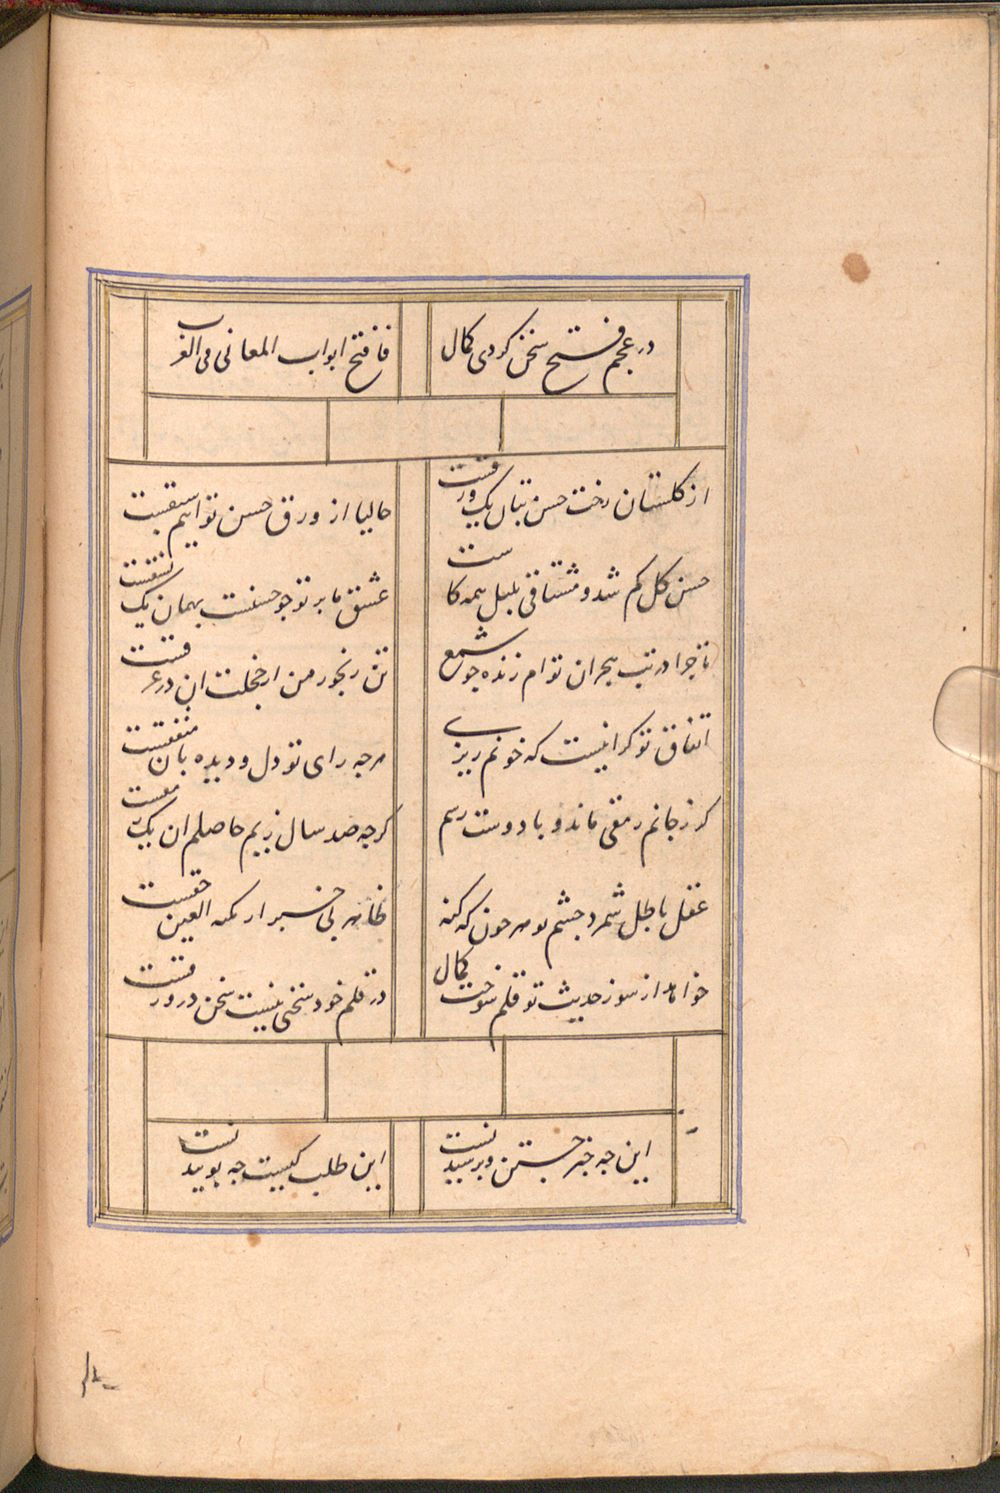 در عجم فتح سخن کردی کمال
فافتح ابواب المعانی فی العرب
از کلستان رخت حسن بتان یک ورقست
حالیا از ورق حسن توایم سبقست
حسن کل کم شد و مشتاقی بلبل همه کاست
عشق ما بر تو جو حسنت بهمان یک نسقست
تا جرا در تب هجران توام زنده جو شمع
تن رنجور من از خجلت ان در عرقست
اتفاق تو کرانیست که خونم ریزی
هرجه رای تو دل و دیده بان متفقست
کر ز جانم رمقی ماند و با دوست رسم
کرجه صد سال زیم حاصلم ان یک رمقست
عقل باطل شمرد جشم تو هر خون که کند
ظاهر بی خبر از نکته العین حقست
خواند از سوز حدیث تو قلم سوخت کمال
در قلم خود سخنی نیست سخن در ورقست
این جه خبر جستن و برسیدنست
این طلب کیست جه بوییدنست